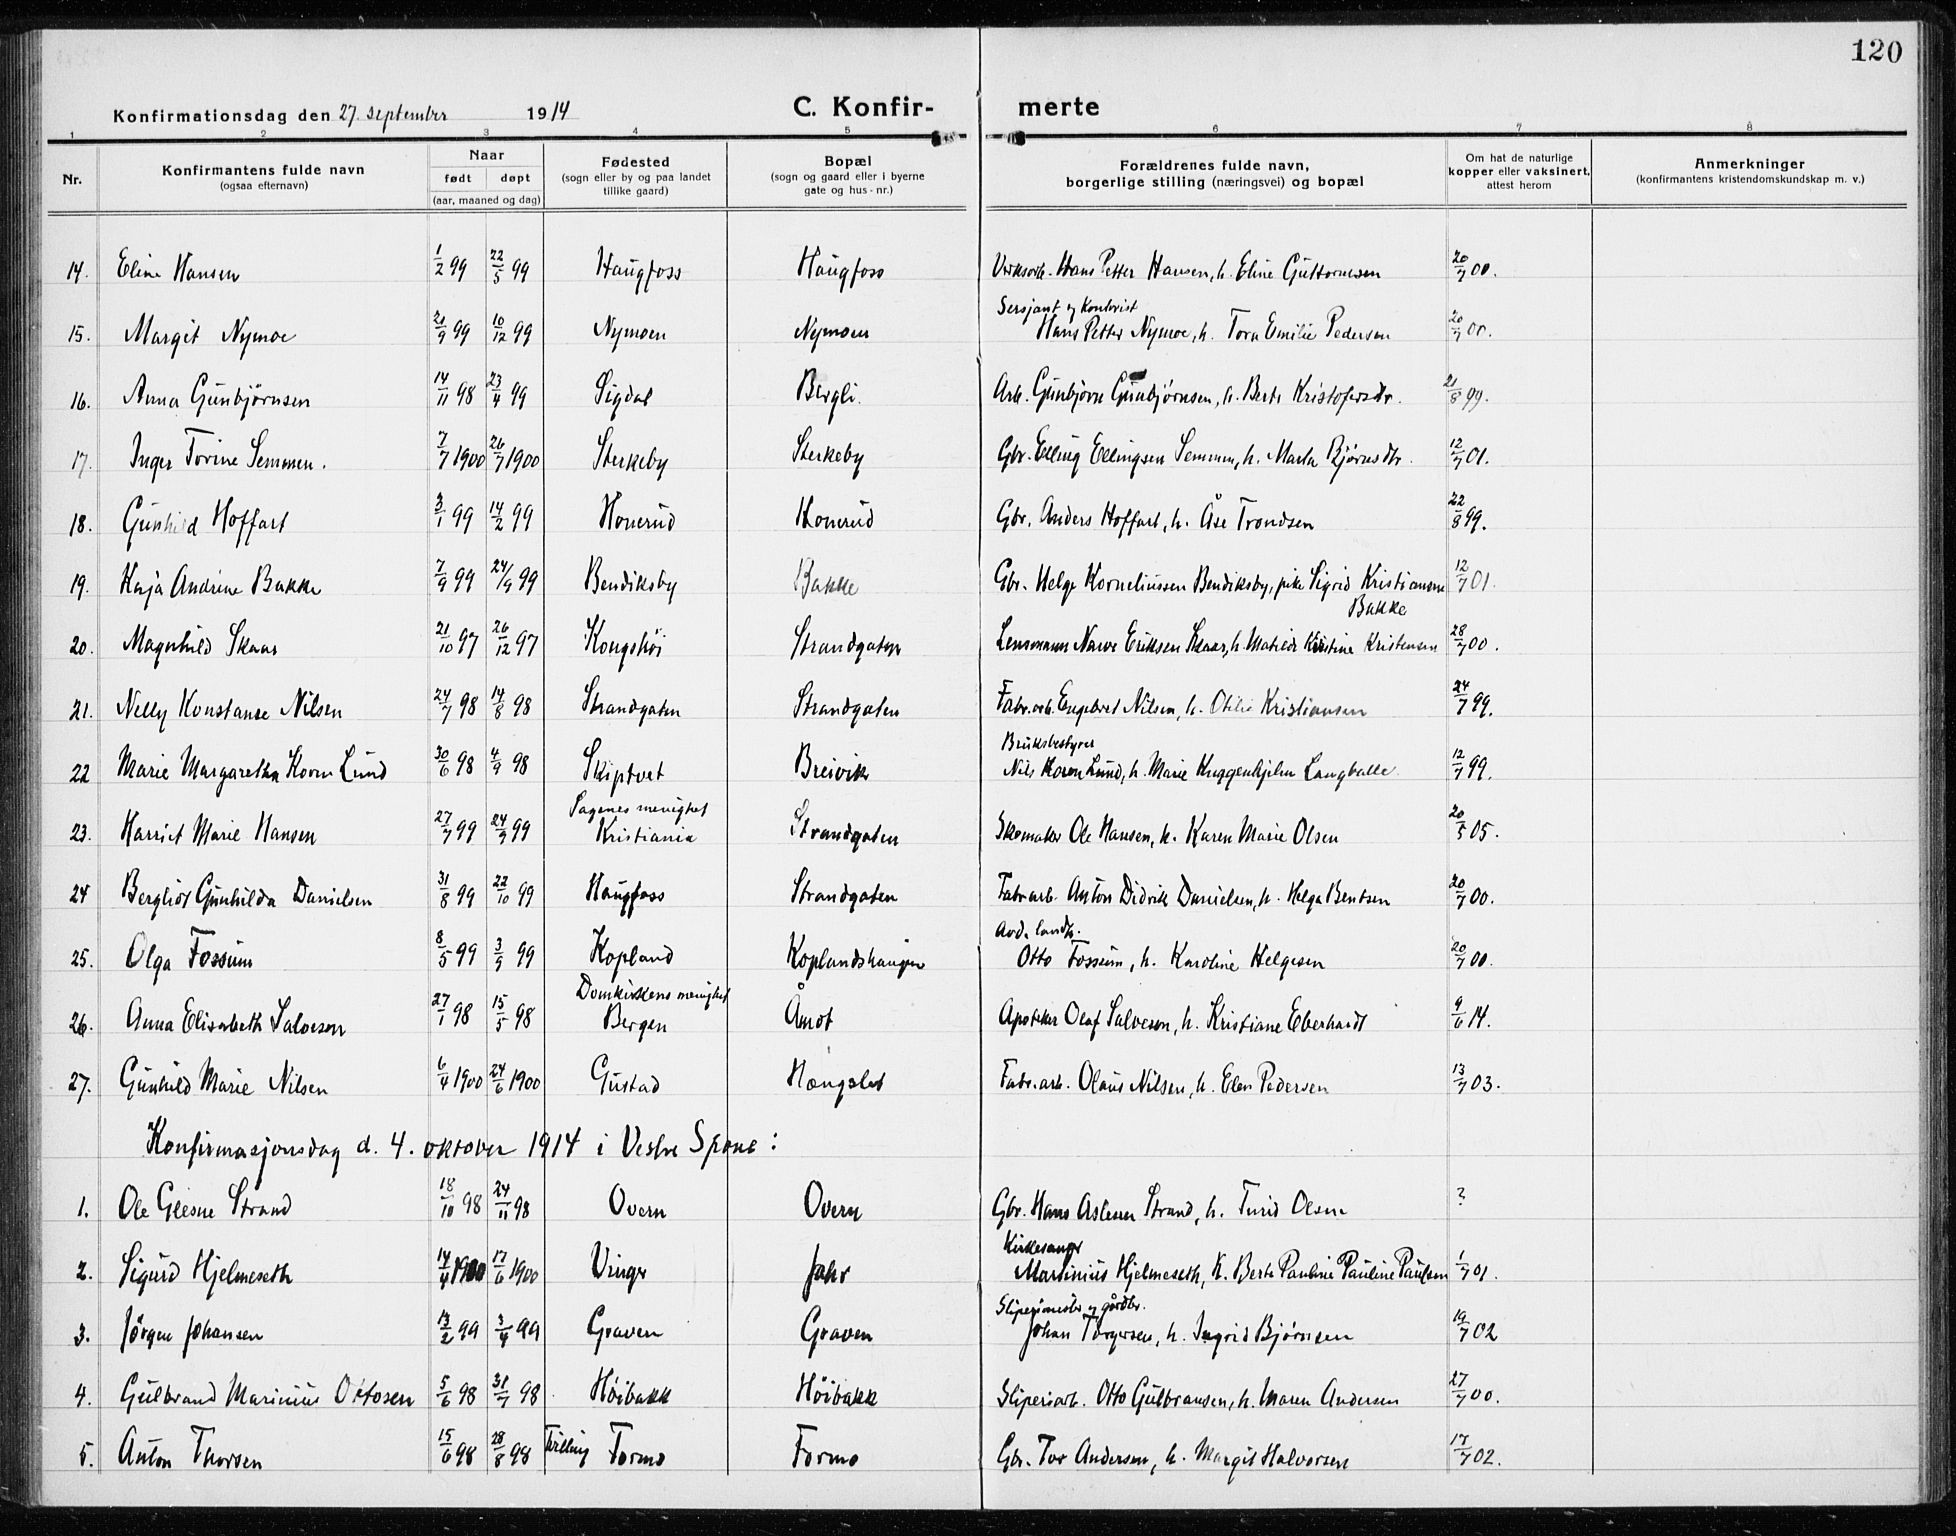 120
Konfirmationsdag den 27. september 1914
C. Konfir- merte
1 2 3 4 5 6 7 8
Nr.
Konfirmantens fulde navn
(ogsaa efternavn)
Naar
født døpt
(aar, maaned og dag)
Fødested
(sogn eller by og paa landet
tillike gaard)
Bopæl
(sogn og gaard eller i byerne
gate og hus-nr.)
Forældrenes fulde navn,
borgerlige stilling (næringsvei) og bopæl
Om hat de naturlige
kopper eller vaksinert,
attest herom
Anmerkninger
(konfirmantens kristendomskundskap m. v.)
14. Eline Hansen 1/2 99 22/5 99 Haugfoss Haugfoss Verksarb. Hans Petter Hansen, h. Eline Guttormsen 20/7 00.
Sersjant og Kontorist
15. Margit Nymoe 21/9 99 10/12 99 Nymoen Nymoen Hans Petter Nymoe, h. Tora Emilie Pedersen 20/7 00.
16. Anna Gunbjørnsen 14/11 98 23/4 99 Sigdal Bergli Arb. Gunbjørn Gunbjørnsen, h. Berte Kristofersdtr. 21/8 99.
17. Inger Torine Semmen. 7/7 1900 26/7 1900 Sterkeby Sterkeby Gbr. Elling Ellingsen Semmen, h. Marta Bjørnsdtr. 12/7 01.
18. Gunhild Hoffart 3/1 99 14/2 99 Honerud Honerud Gbr. Anders Hoffart, h. Åse Trondsen 22/8 99.
19. Kaja Andrine Bakke 7/9 99 24/9 99 Bendiksby Bakke Gbr. Helge Korneliussen Bendiksby, pike Sigrid Kristiansen 12/7 01.
Bakke
20. Magnhild Skaar 21/10 97 26/12 97 Kongshöi Strandgaten Lensmann Narve Eriksen Skaar, h. Matilde Kristine Kristensen 28/7 00.
21. Nelly Konstanse Nilsen 24/7 98 14/8 98 Strandgaten Strandgaten Fabr.arb. Engebret Nilsen, h. Otilie Kristiansen 24/7 99.
Bruksbestyrer
22 Marie Margaretha Koren Lund 30/6 98 4/9 98 Skiptvet Breivik Nils Koren Lund, h. Marie Langballe 12/7 99.
Sagenes menighet
23. Harriet Marie Hansen 27/7 99 24/9 99 Kristiania Strandgaten Skomaker Ole Hansen, h. Karen Marie Olsen 20/5 05.
24 Bergliot Gunhilda Danielsen 31/8 99 22/10 99 Haugfoss Strandgaten Fabr.arb. Anton Didrik Danielsen, h. Helga Bentsen 20/7 00.
Avd. landh.
25. Olga Fossum 8/5 99 3/9 99 Kopland Koplandshaugen Otto Fossum, h. Karoline Helgesen 20/7 00.
Domkirkens menighet
26. Anna Elisabeth Salvesen 27/1 98 15/5 98 Bergen Åmot Apoteker Olaf Salvesen, h. Kristiane Eberhardt 9/6 14.
27. Gunhild Marie Nilsen 6/4 1900 24/6 1900 Gustad Hængslet Fabr.arb. Olaus Nilsen, h. Elen Pedersen 13/7 03.
Konfirmasjonsdag d. 4. oktober 1914 i Vestre Spone:
1. Ole Glesne Strand 18/10 98 24/11 98 Overn Overn Gbr. Hans Aslesen Strand, h. Turid Olsen ?
Kirkesanger
2. Sigurd Hjelmeseth 14/4 1900 17/6 1900 Vinger Jahr Martinius Hjelmeseth, h. Berte Pauline Pauline Paulsen 1/7 01.
Sliperimester og gårdbr.
3. Jörgen Johansen 13/2 99 3/4 99 Graven Graven Johan Torgersen, h. Ingrid Bjørnsen 19/7 02
4. Gulbrand Marinius Ottosen 5/6 98 31/7 98 Höibakk Höibakk Sliperiarb. Otto Gulbransen, h. Maren Andersen 27/7 00.
5. Anton Thorsen 15/6 98 28/8 98 Tvilling Formo Formo Gbr. Tor Andersen, h. Margit Halvorsen 17/7 02.